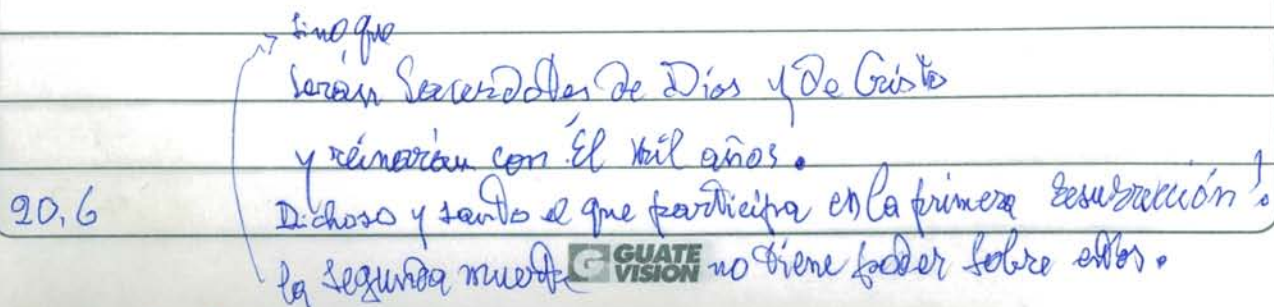 sino que
serán Sacerdotes de Dios y de Cristo
y reinarán con Él mil años.
20,6 Dichoso y santo el que participa en la primera resurrección!.
la segunda muerte GUATE VISION no tiene poder sobre estos.